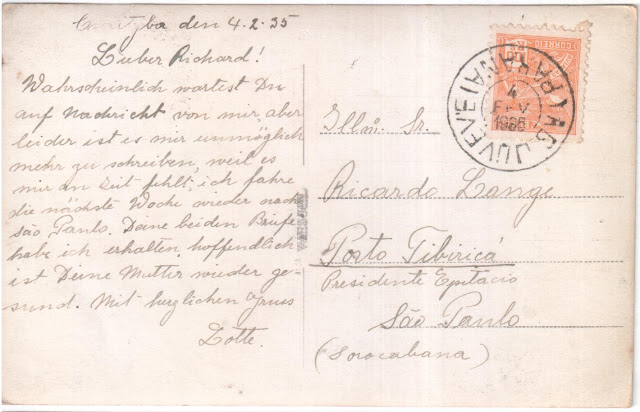 Curityba den 4.2.35
Lieber Richard!
Wahrscheinlich wartest Du
auf Nachricht von mir, aber
leider ist es mir unmöglich
mehr zu schreiben, weil es
mir an Zeit fehlt, ich fahre
die nächste Woche wieder nach
São Paulo. Deine beiden Briefe
habe ich erhalten, hoffendlich
ist Deine Mutter wieder ge-
sund. Mit herzlichen Gruss
Lotte.
Illmº. Sr.
Ricardo Lange
Porto Tibiriçá
Presidente Epitacio
São Paulo
(Sorocabana)
CORREIO
AG. JUVEVÊ
PARANÁ
4
FEV
1935